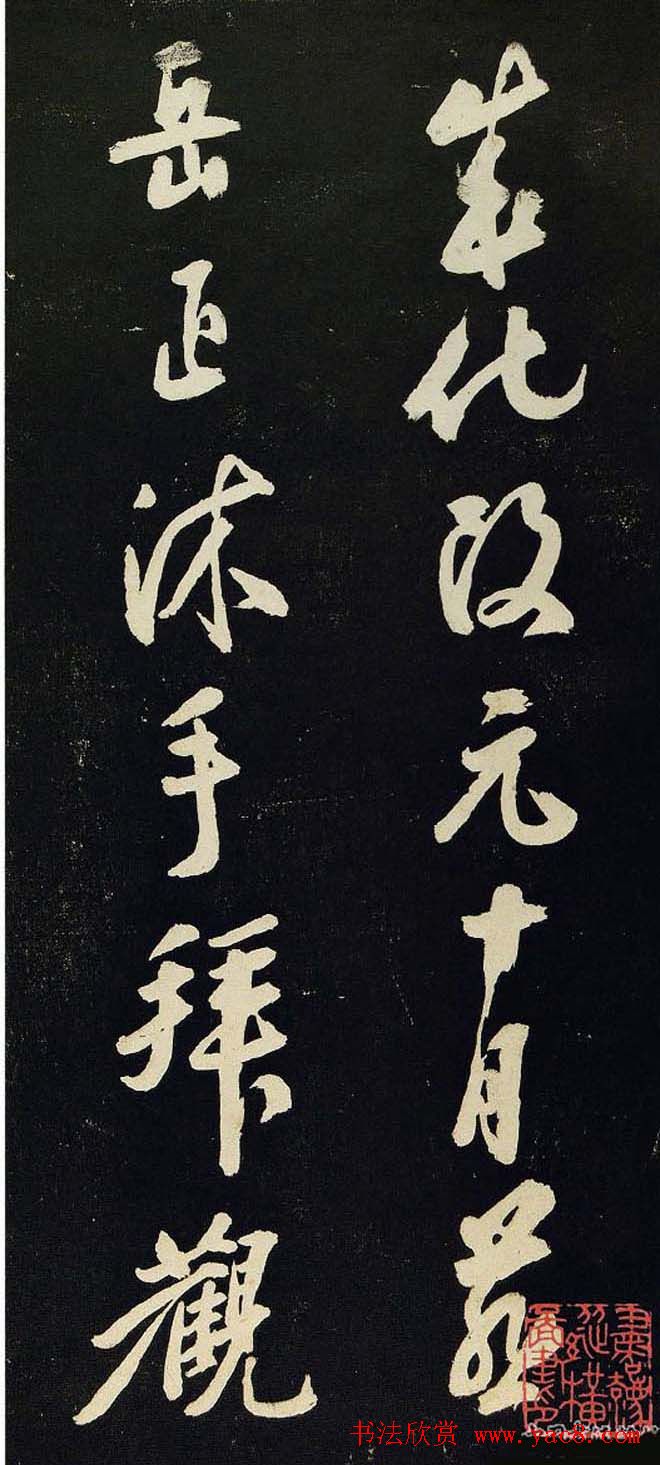 成化改元十月
岳正沐手拜觀
书法欣赏 www.yac8.com